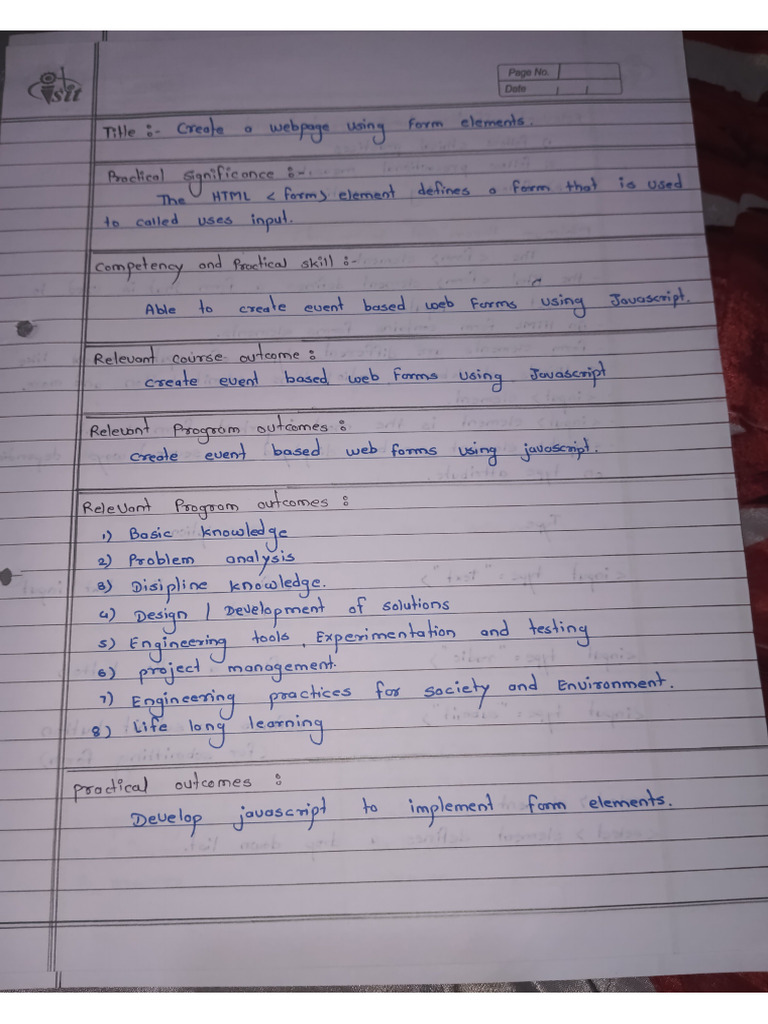 isit
Page No.
Date
Title :- Create a webpage using form elements.
Practical significance :-
The HTML < form> element defines a form that is used
to called uses input.
Competency and Practical skill :-
Able to create event based web forms using Javascript.
Relevant course outcome :
create event based web forms using Javascript
Relevant Program outcomes :
create event based web forms using javascript.
Relevant Program outcomes :
1) Basic knowledge
2) Problem analysis
3) Disipline knowledge.
4) Design / Development of solutions
5) Engineering tools, Experimentation and testing
6) project management.
7) Engineering practices for society and Environment.
8) Life long learning
practical outcomes :
Develop javascript to implement form elements.